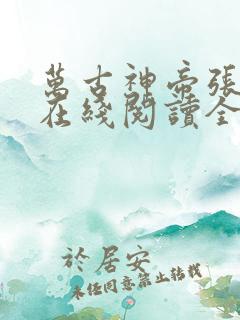 萬古神帝張
在綫閱讀全
於居安
未經同意禁止轉載